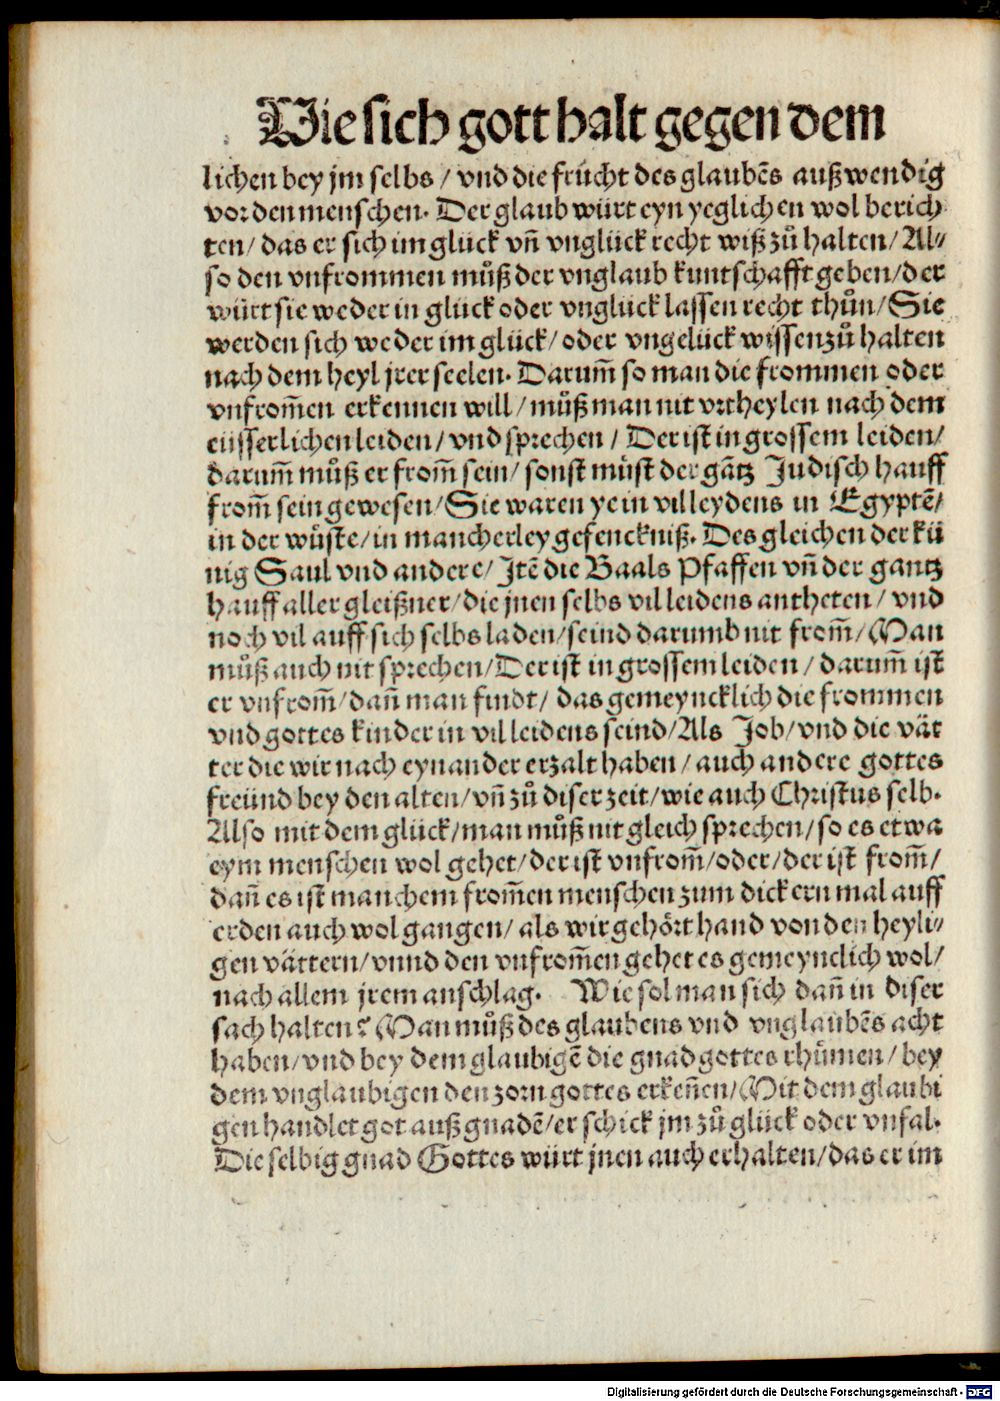 Wie sich gott halt gegen dem
lichen bey jm selbs / vnd die frücht des glaubēs außwendig
vor den menschen. Der glaub würt eyn yeglichen wol berich
ten / das er sich im glück vñ vnglück recht wiß zů halten / Al⸗
so den vnfrommen můß der vnglaub kuntschafft geben / der
würt sie weder in glück oder vnglück lassen recht thůn / Sie
werden sich weder im glück / oder vngelück wissen zů halten
nach dem heyl jrer seelen. Darum̃ so man die frommen oder
vnfrom̃en erkennen will / můß man nit vrtheylen nach dem
eüsserlichen leiden / vnd sprechen / Der ist in grossem leiden /
darum̃ můß er from̃ sein / sonst müst der gātz Judisch hauff
from̃ sein gewesen / Sie waren ye in vil leydens in Egyptē /
in der wůste / in mancherley gefenckniß. Des gleichen der kü
nig Saul vnd andere / Jtē die Baals Pfaffen vñ der gantz
hauff aller gleißner / die jnen selbs vil leidens antheten / vnd
noch vil auff sich selbs laden / seind darumb nit from̃ / Man
můß auch nit sprechen / Der ist in grossem leiden / darum̃ ist
er vnfrom̃ / dañ man findt / das gemeyncklich die frommen
vnd gottes kinder in vil leidens seind / Als Job / vnd die vät
ter die wir nach eynander erzalt haben / auch andere gottes
freünd bey den alten / vñ zů diser zeit / wie auch Christus selb.
Also mit dem glück / man můß nit gleich sprechen / so es etwa
eym menschen wol gehet / der ist vnfrom̃ / oder / der ist from̃ /
dañ es ist manchem from̃en menschen zum dickern mal auff
erden auch wol gangen / als wir gehört hand von den heyli⸗
gen vättern / vnnd den vnfrom̃en gehet es gemeynclich wol /
nach allem jrem anschlag. Wie sol man sich dañ in diser
sach halten? Man můß des glaubens vnd vnglaubēs acht
haben / vnd bey dem glaubigē die gnad gottes rhůmen / bey
dem vnglaubigen den zorn gottes erkeñen / Mit dem glaubi
gen handlet got auß gnadē / er schick jm zů glück oder vnfal.
Die selbig gnad Gottes würt jnen auch erhalten / das er im
Digitalisierung gefördert durch die Deutsche Forschungsgemeinschaft - DFG